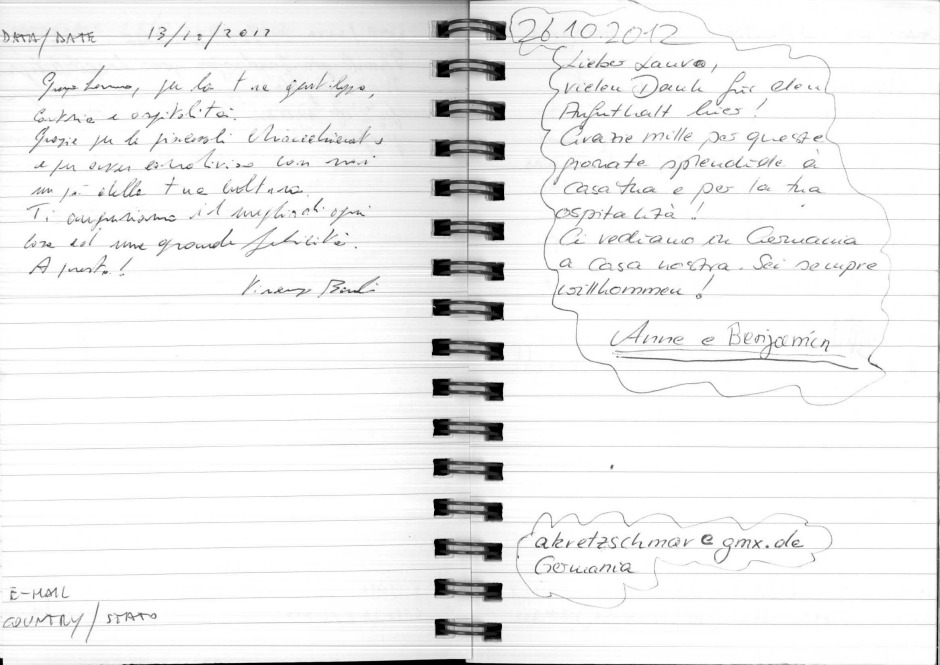 DATA/DATE 13/10/2012
per la tua gentilezza,
cortesia e ospitalità.
Grazie per le piacevoli chiacchierate
e per aver condiviso con noi
un po' della tua cultura.
Ti auguriamo il meglio di ogni
cosa ed una grande felicità.
A presto!
E-MAIL
COUNTRY/STATO
26.10.2012
Lieber Laura,
vielen Dank für den
Aufuthalt hier!
Grazie mille per queste
gionate splendide a
casa tua e per la tua
ospitalità!
Ci vediamo in Germania
a casa nostra. Sei sempre
willhommen!
Anne e Benjamin
akretzschmar@gmx.de
Germania